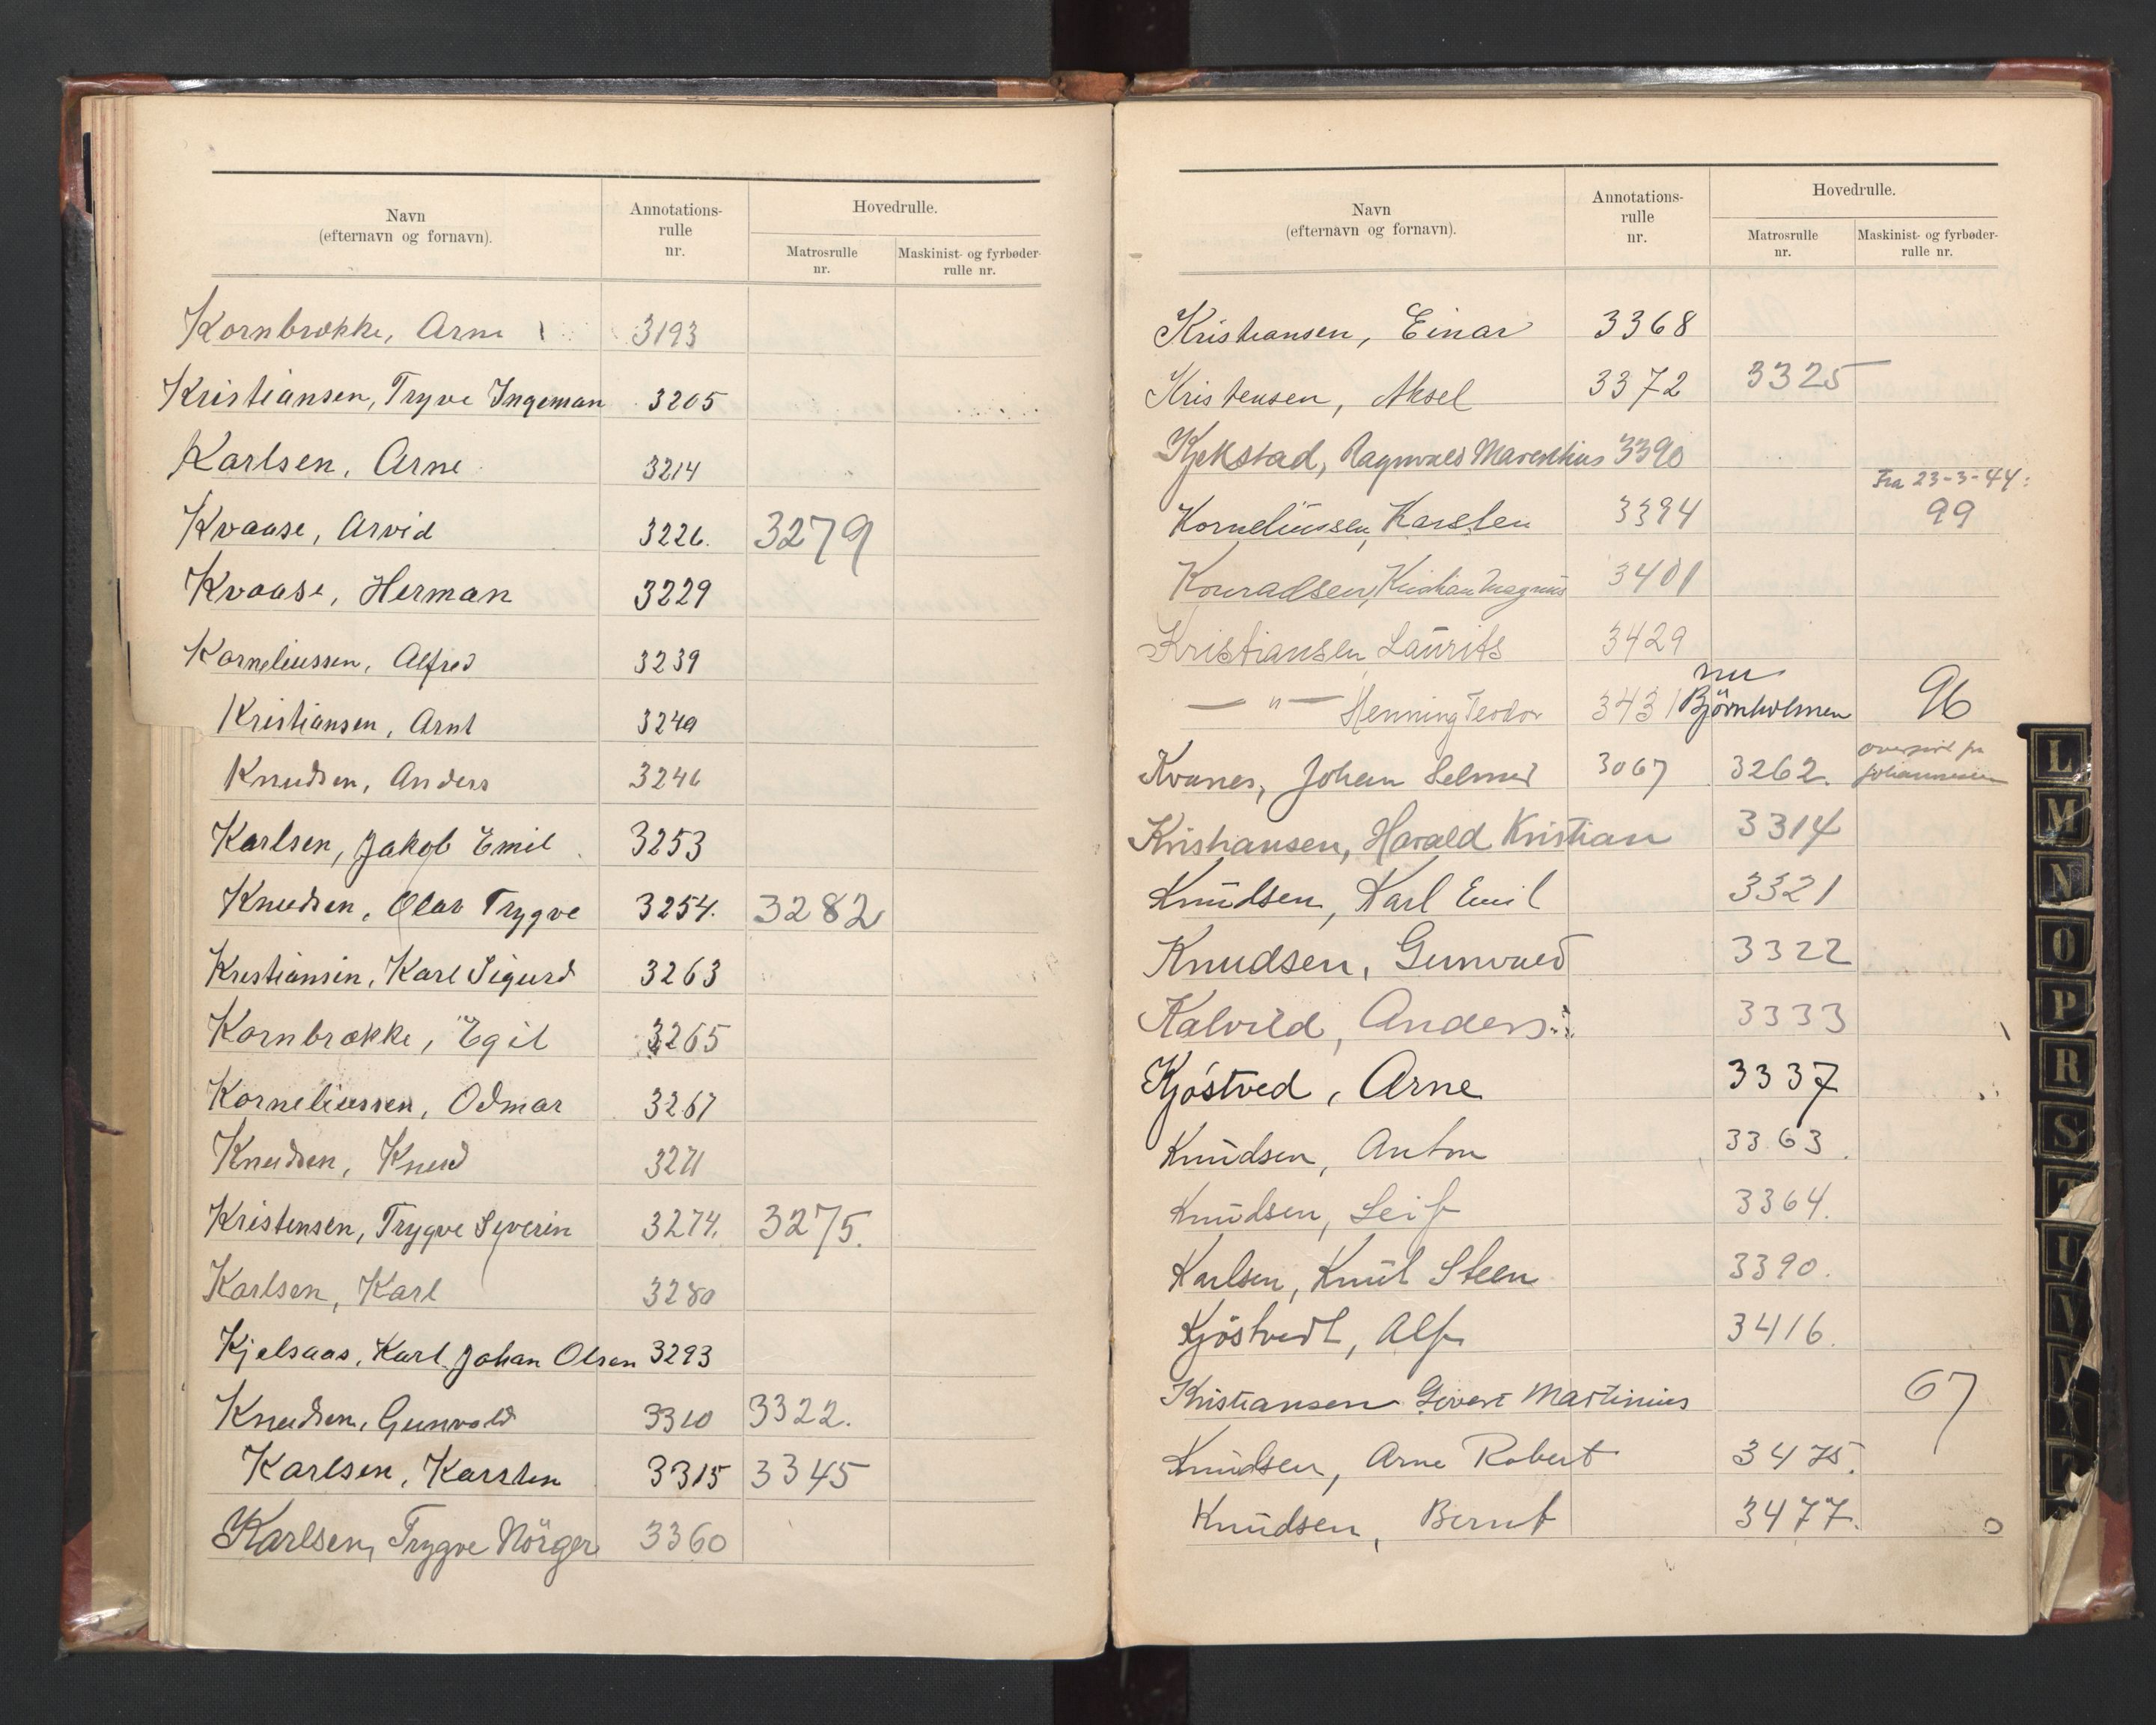 Navn
(efternavn og fornavn).
Annotations-
rulle
nr.
Hovedrulle.
Matrosrulle
nr.
Maskinist- og fyrbøder-
rulle nr.
Kornbrække, Arne 3193
Kristiansen, Trygve Ingeman 3205
Karlsen, Arne 3214
Kvaase, Arvid 3226. 3279
Kvaase, Herman 3229
Korneliussen, Alfred 3239
Kristiansen, Arnt 3240
Knudsen, Anders 3246
Karlsen, Jakob Emil 3253
Knudsen, Olav Trygve 3254. 3282
Kristiansen, Karl Sigurd 3263
Kornbrække, Egil 3265
Korneliussen, Odmar 3267
Knudsen, Knud 3271
Kristensen, Trygve Severin 3274. 3275.
Karlsen, Karl 3280
Kjelsaas, Karl Johan Olsen 3293
Knudsen, Gunvald 3310 3322.
Karlsen, Karsten 3315 3345
Karlsen, Trygve Nörger 3360
Navn
(efternavn og fornavn).
Annotations-
rulle
nr.
Hovedrulle.
Matrosrulle
nr.
Maskinist- og fyrbøder-
rulle nr.
Kristiansen, Einar 3368
Kristensen, Aksel 3372 3325
Kjekstad, Ragnvald 3390
Fra 23-3-44:
Korneliussen, Karsten 3394 99
Konradsen, Kristian Magnus 3401
Kristiansen Laurits 3429
nu
— " — Henning Teodor 3431 Björnholmen 96
overført fra
Kvanes, Johan Selmer 3067 3262. Johannesen
Kristiansen, Harald Kristian 3314
Knudsen, Karl Emil 3321
Knudsen, Gunvald 3322
Kalvild, Anders 3333
Kjöstved, Arne 3337
Knudsen, Anton 3363.
Knudsen, Leif 3364.
Karlsen, Knut Steen 3390.
Kjöstvedt, Alf 3416.
Kristiansen Sivert Martinius 67
Knudsen, Arne Robert 3475.
Knudsen, Bernt 3477.
L
M
N
O
P
R
S
T
U
V